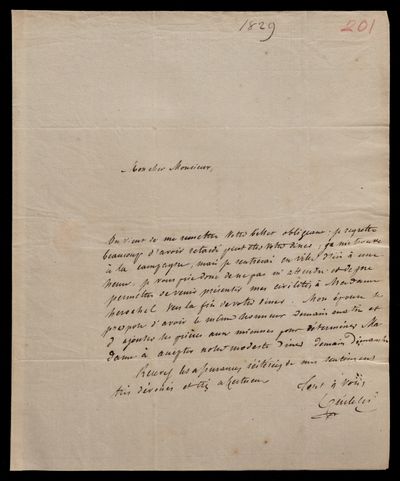 1829
201
Mon cher Monsieur,
On vient de me remettre votre billet obligeant. je regrette
beaucoup d'avoir retardé peut être votre diner; je me trouve
à la campagne, mais je rentrerai en ville d'ici à une
heure. je vous prie donc de ne pas m'attendre et de me
permettre de venir présenter mes civilités à Madame
herschel vers la fin de votre diner. Mon épouse se
propose d'avoir le même honneur demain matin et
d'ajouter ses prières aux miennes pour déterminer Ma
dame à accepter notre modeste diner demain dimanche
Recevez les assurances réitérées de mes sentimens
très dévoués et très affectueux
Tout à vous